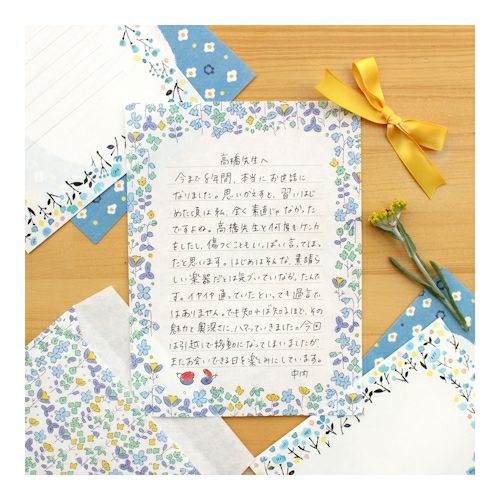 高橋先生へ
今まで8年間、本当にお世話に
なりました。思いかえすと、習いはじ
めた頃は私、全く素直じゃなかった
ですよね。高橋先生と何度もケンカ
をしたし、傷つくこともいっぱい言ってしまっ
たと思います。はじめはそんな、素晴らし
い楽器だとは気づいていなかったんで
す。イヤイヤ通っていたといっても過言で
はありません。でも知れば知るほど、その
魅力と奥深さに、ハマっていきました。今回
は引越しで移動になってしまいましたが、
またお会いできる日を楽しみにしています。
中内